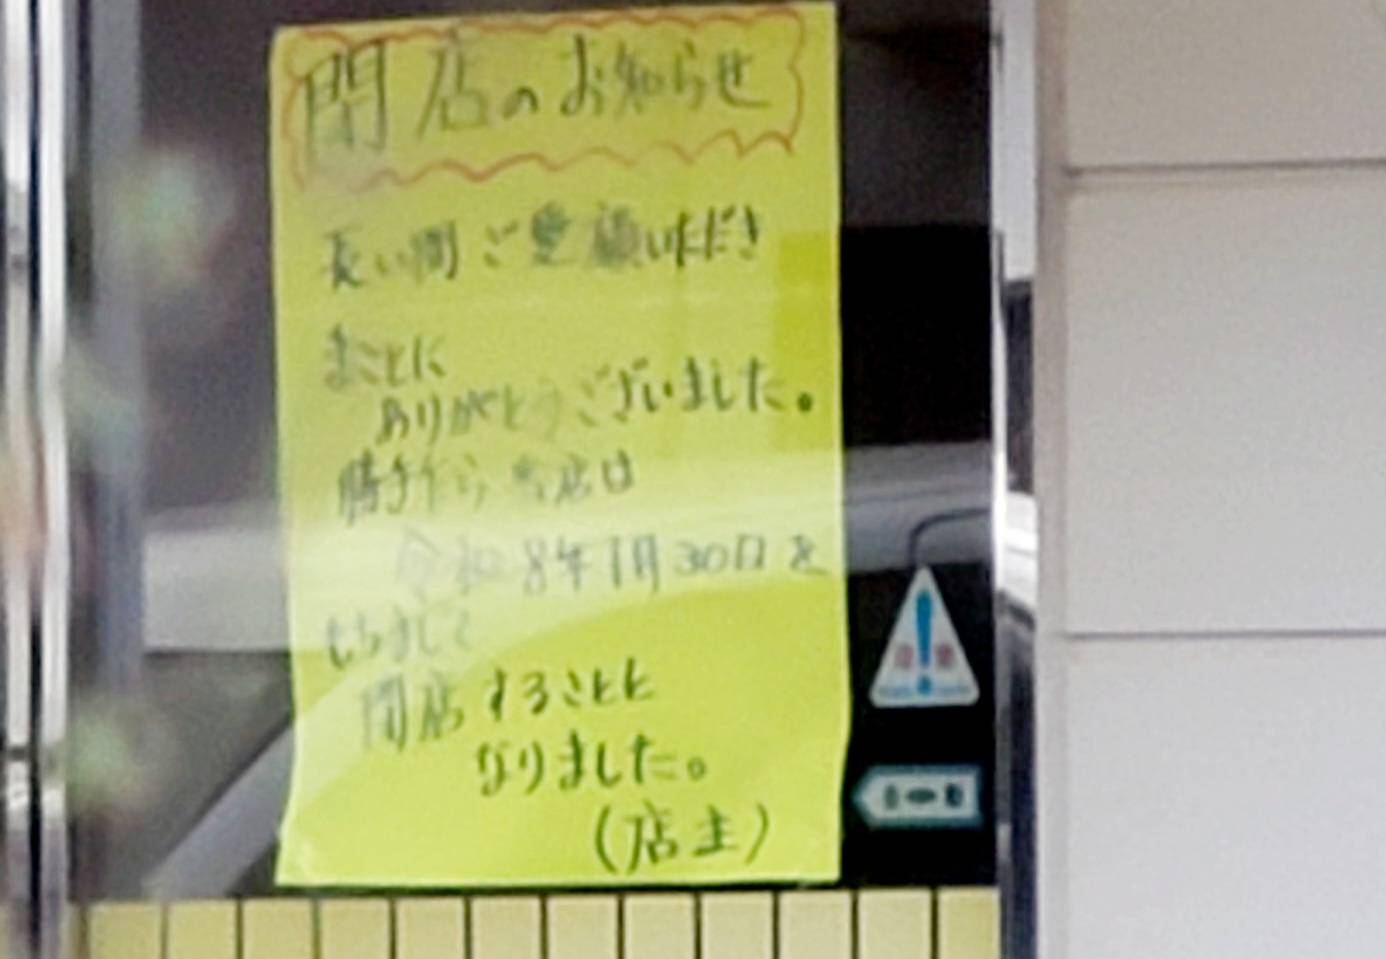 閉店のお知らせ
長い間ご愛顧いただき
まことに
ありがとうございました。
勝手乍ら当店は
令和8年1月30日を
もちまして
閉店することに
なりました。
(店主)
自動